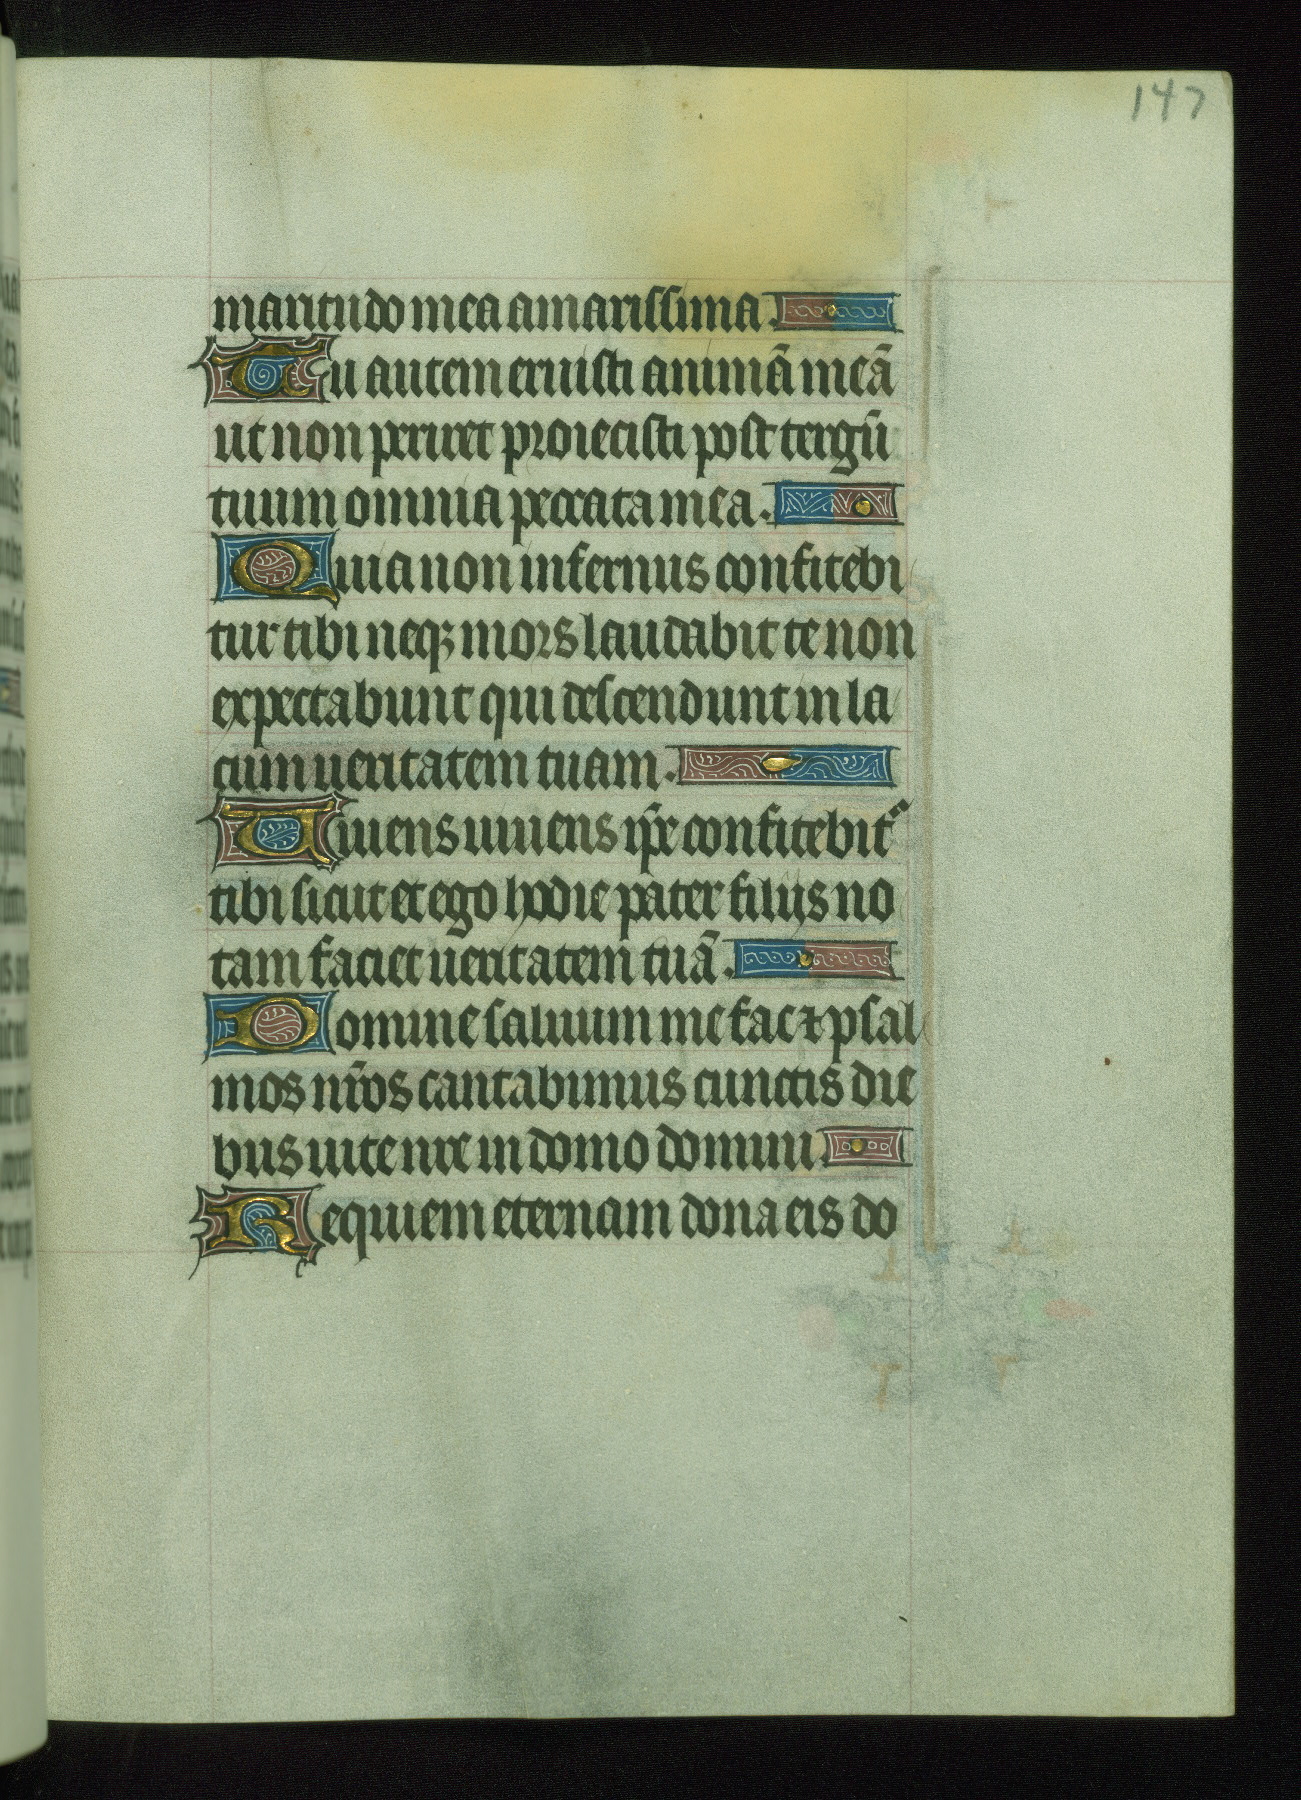 147
maritudo mea amarissima.
Tu autem eruisti animā meā
ut non periret proiecisti post tergū
tuum omnia peccata mea.
Quia non infernus confitebi
tur tibi neqꝫ mors laudabit te non
expectabunt qui descendunt in la
cum ueritatem tuam.
Uiuens uiuens ip̄e confitebit᷑
tibi sicut et ego hodie pater filijs no
tam faciet ueritatem tuā.
Domine saluum me fac ⁊ psal
mos nr̄os cantabimus cunctis die
bus uite nr̄e in domo domini.
Requiem eternam dona eis do